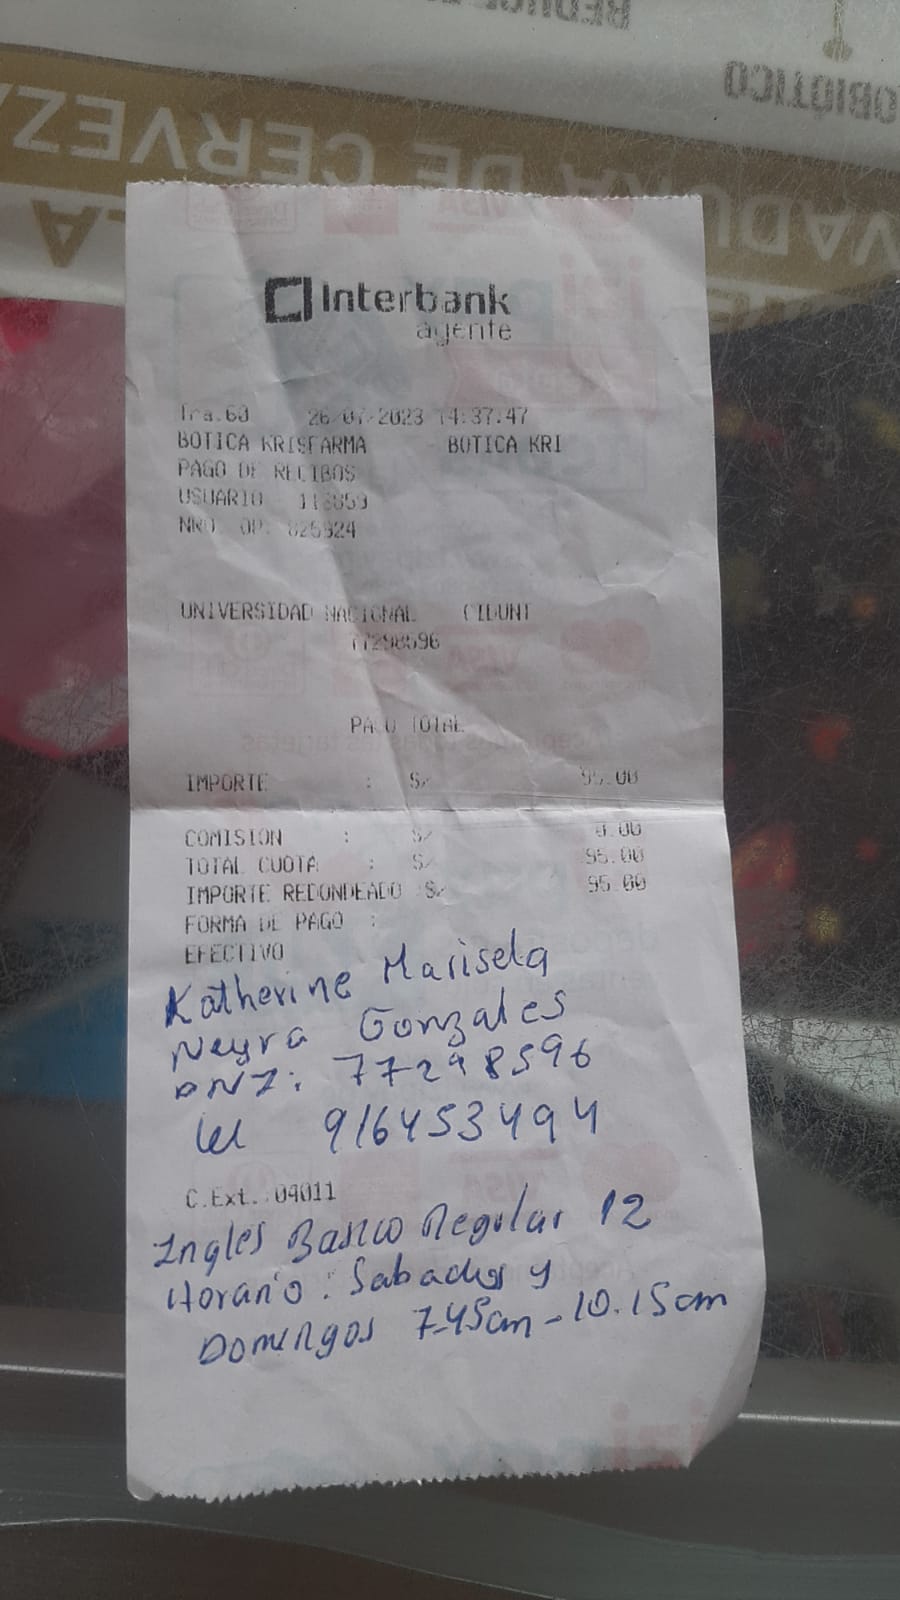 REDUCE
OBIÓTICO
VADURA DE CERVEZA
LA
Interbank
agente
Tra.60 26/07/2023 14:37.47
BOTICA KRISFARMA - BOTICA KRI
PAGO DE RECIBOS
USUARIO
NRO. OP.
UNIVERSIDAD NACIONAL CIDUNT
77298596
PAGO TOTAL
IMPORTE : S/ 95.00
COMISION : S/ 0.00
TOTAL CUOTA : S/ 95.00
IMPORTE REDONDEADO S/ 95.00
FORMA DE PAGO :
EFECTIVO
Katherine Marisela
Neyra Gonzales
DNI: 77298596
tel 916453494
C.Ext.:04011
Ingles Basico Regular 12
Horario: Sabados y
Domingos 7.45am - 10.15am